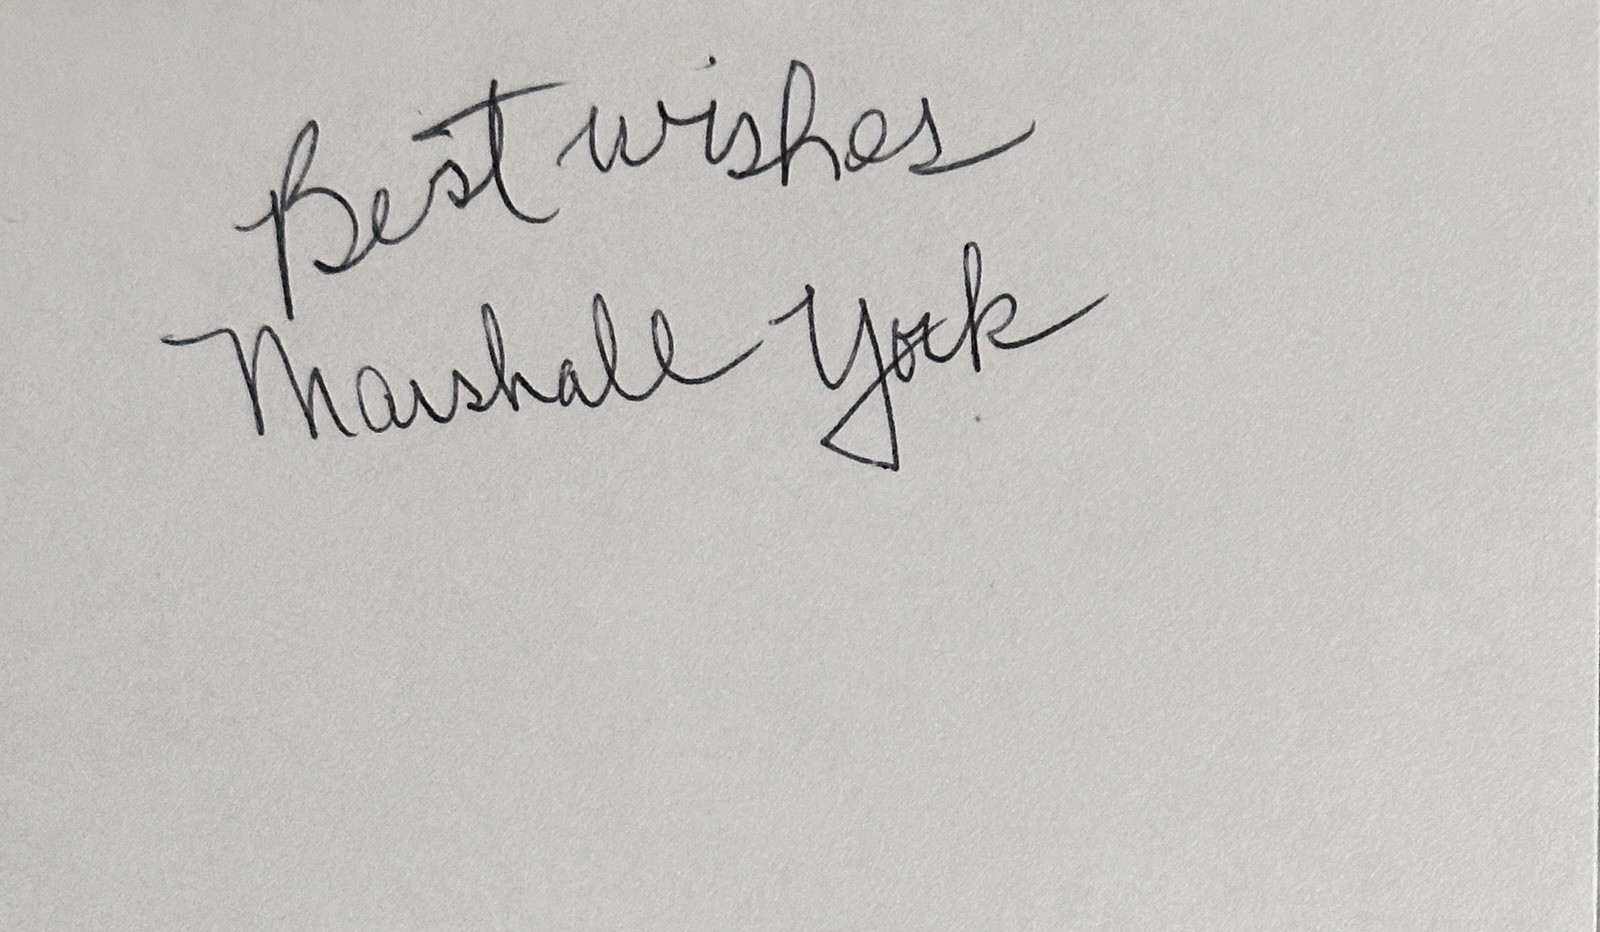 Best wishes
Marshall York